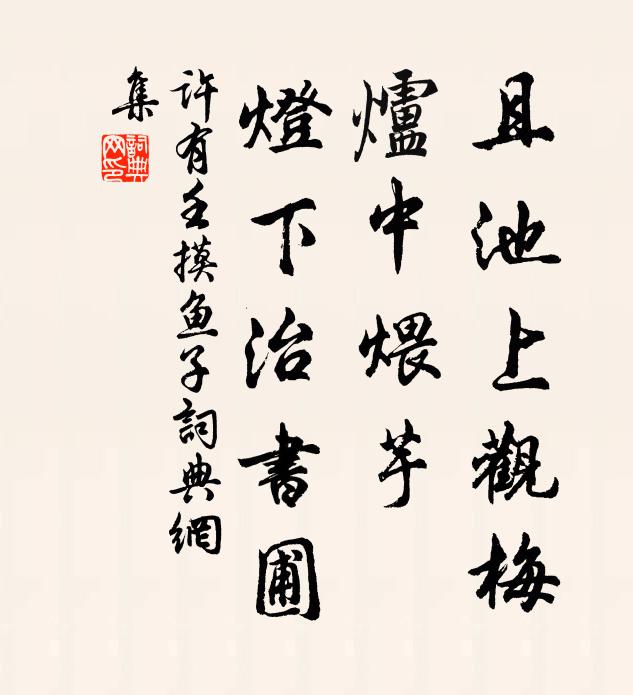 且池上觀梅
爐中煨芋
燈下治書圃
許有壬摸鱼子詞典網
集
詞典网印